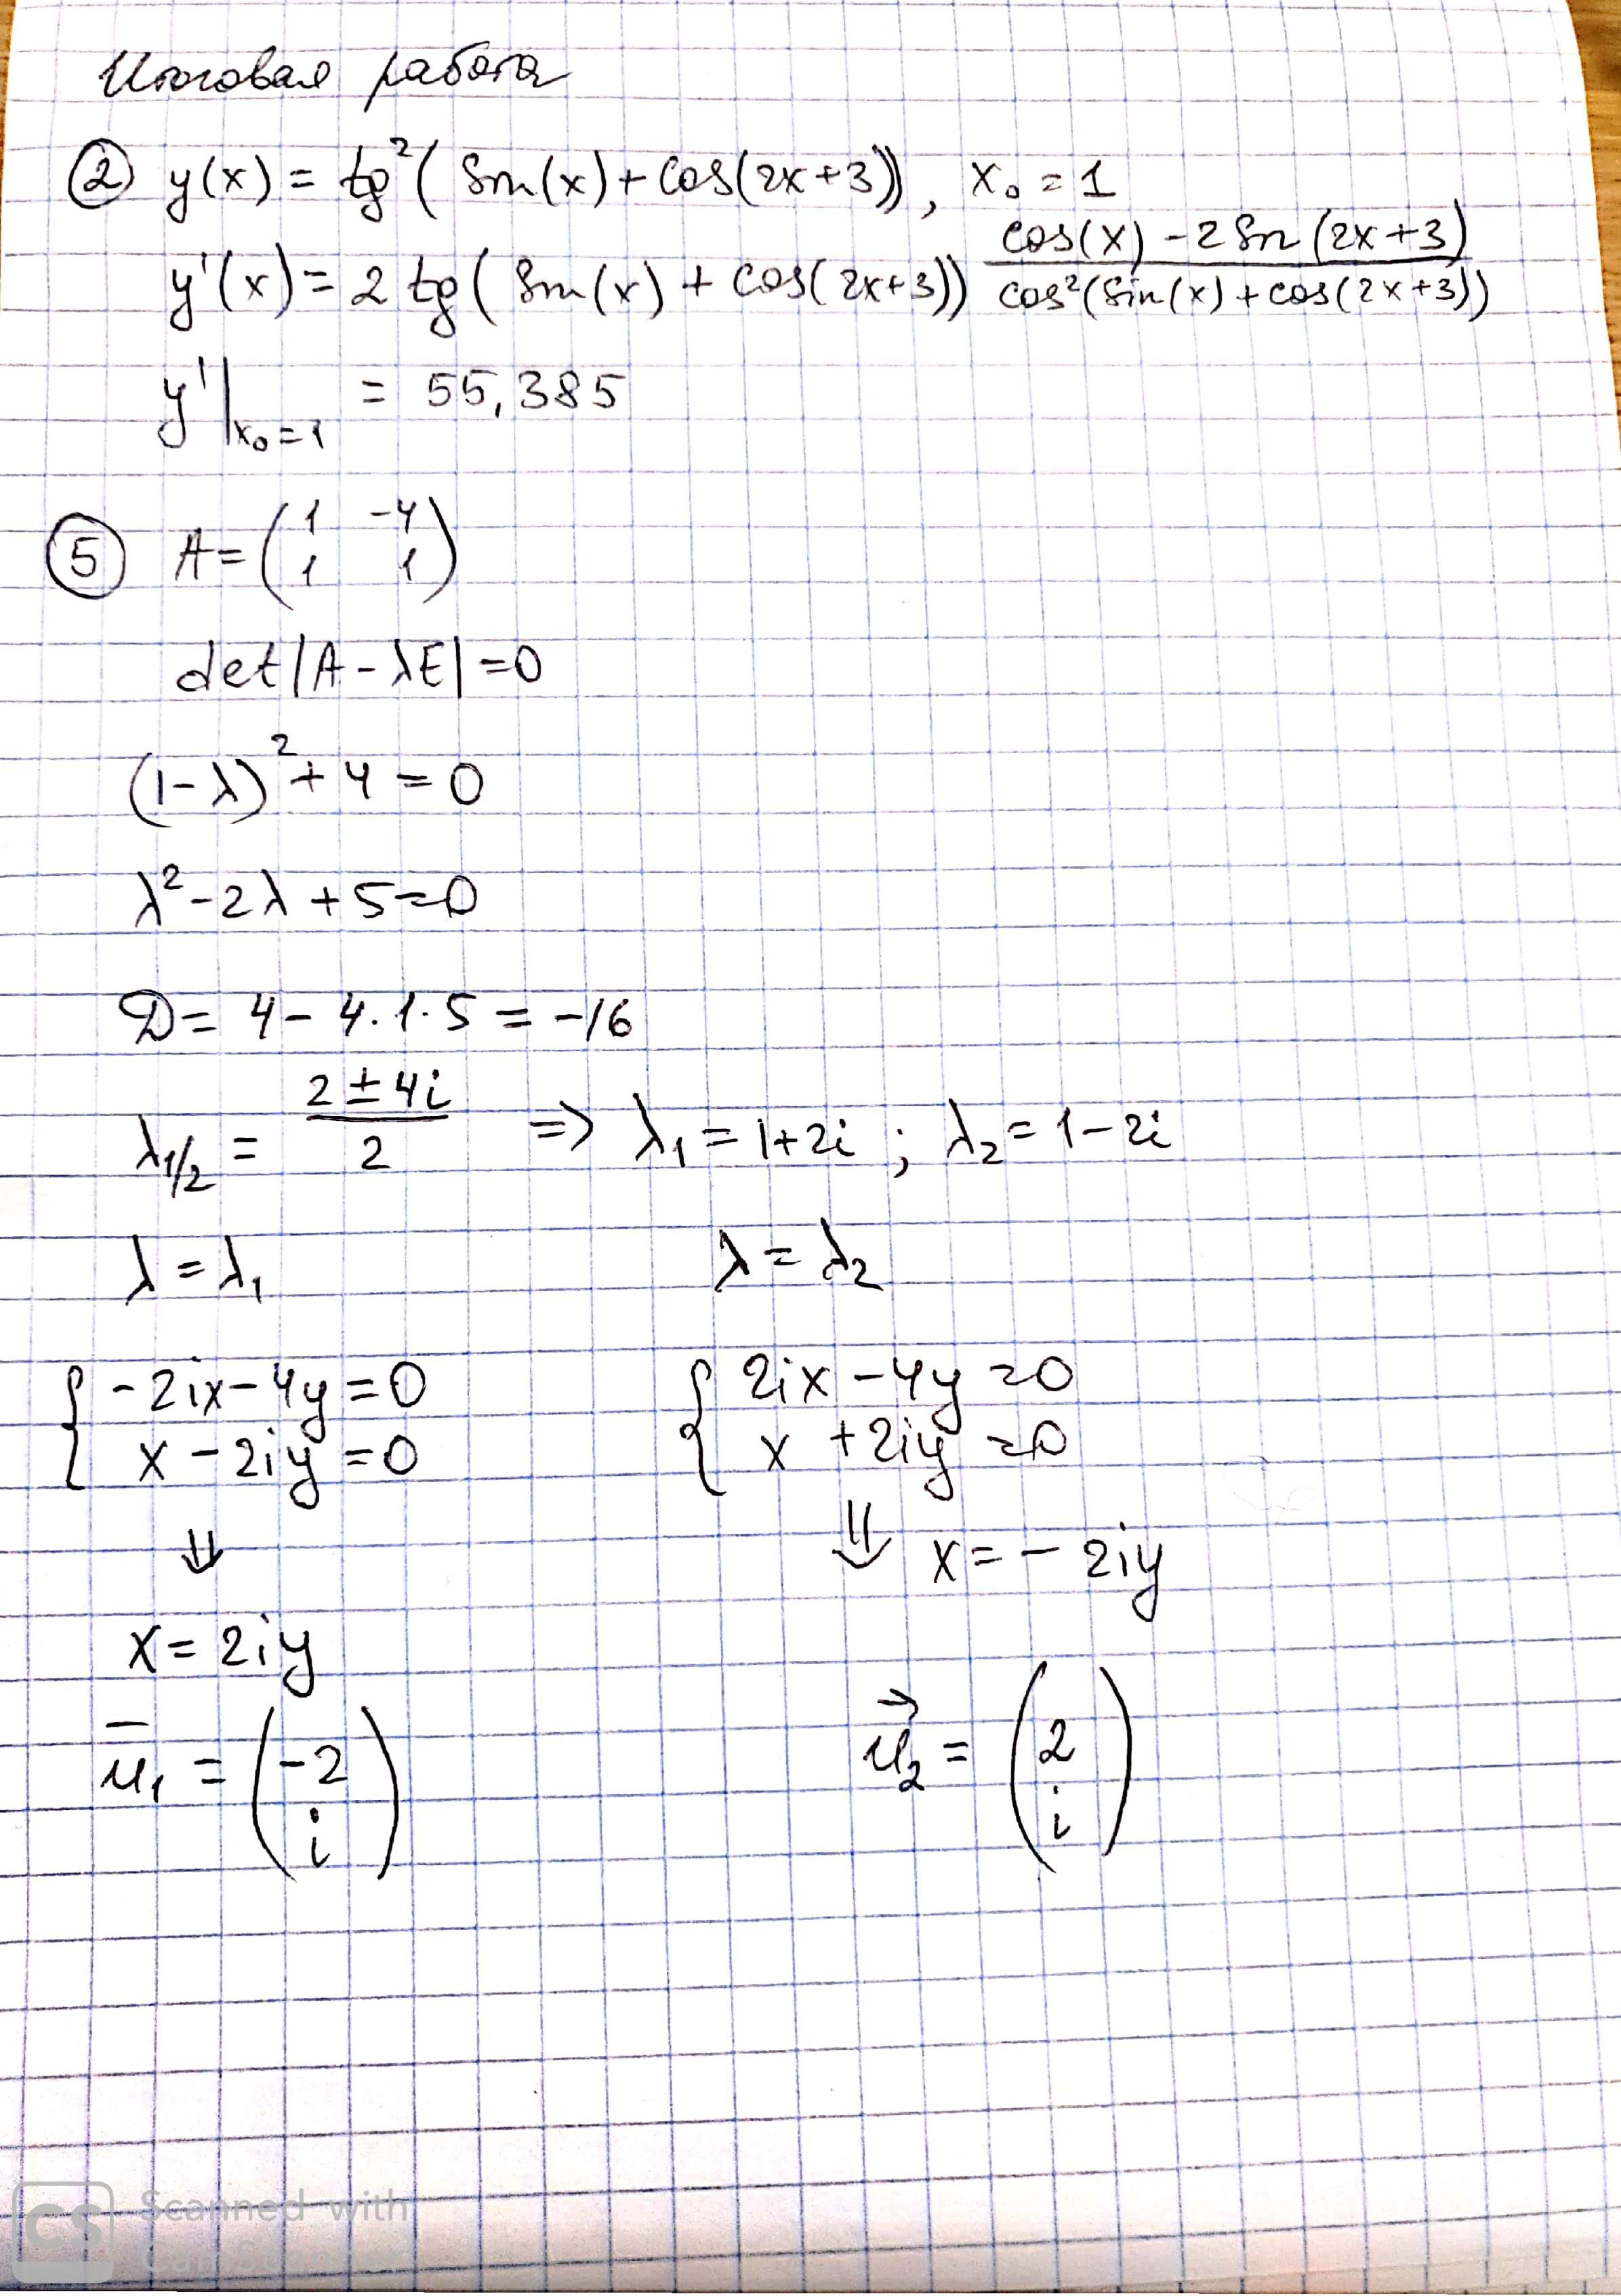 Итоговая работа
② y(x) = tg²(sin(x) + cos(2x+3)), x₀ = 1
y'(x) = 2 tg(sin(x) + cos(2x+3)) (cos(x) - 2 sin(2x+3)) / (cos²(sin(x) + cos(2x+3)))
y'|x₀=1 = 55,385
⑤ A = (1 -4
1 1)
det|A - λE| = 0
(1-λ)² + 4 = 0
λ² - 2λ + 5 = 0
D = 4 - 4·1·5 = -16
λ1/2 = (2 ± 4i) / 2 => λ₁ = 1+2i ; λ₂ = 1-2i
λ = λ₁ λ = λ₂
{ -2ix - 4y = 0 { 2ix - 4y = 0
x - 2iy = 0 x + 2iy = 0
⇓ ⇓ x = - 2iy
x = 2iy
u̅₁ = (-2 u⃗₂ = (2
i) i)
Scanned with
CamScanner